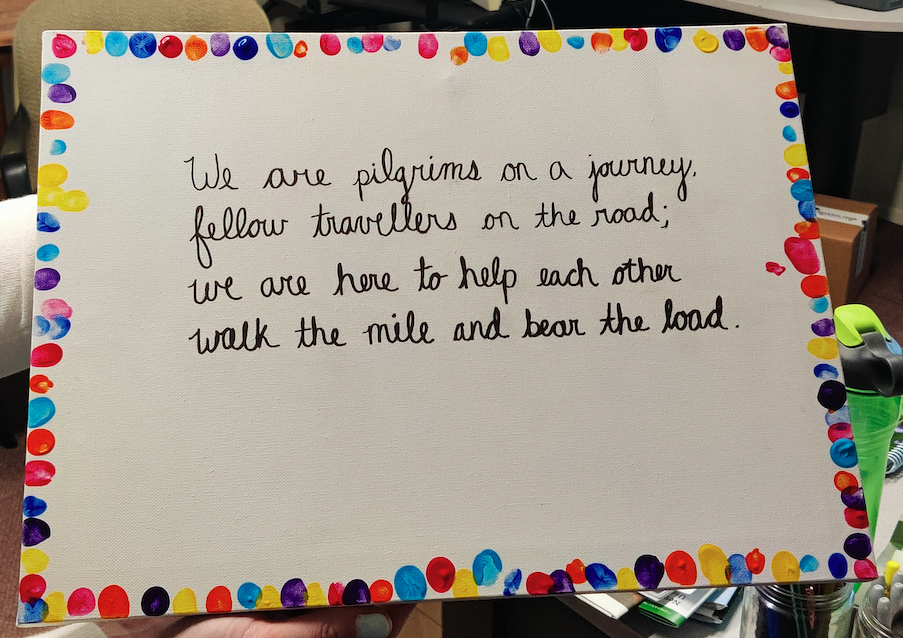 We are pilgrims on a journey,
fellow travellers on the road;
we are here to help each other
walk the mile and bear the load.